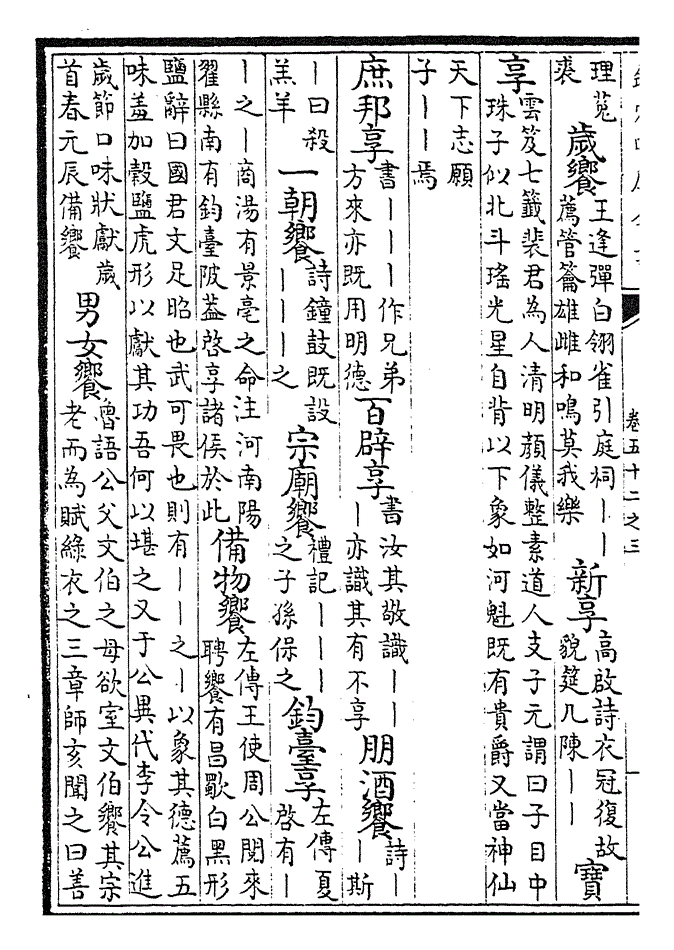 卷五十二之三
理菟裘 歲饗 王逢彈白翎雀引庭祠｜｜薦管籥雄雌和鳴莫我樂 新享 高啟詩衣冠復故貌筵几陳｜｜ 寶
享 雲笈七籤裴君為人清明顏儀整素道人支子元謂曰子目中珠子似北斗瑤光星自背以下象如河魁既有貴爵又當神仙
天下志願子｜｜焉
庶邦享 書｜｜｜作兄弟方來亦既用明德 百辟享 書汝其敬識｜｜｜亦識其有不享 朋酒饗 詩｜｜斯
｜曰殺羔羊 一朝饗 詩鐘鼓既設｜｜｜之 宗廟饗 禮記｜｜｜之子孫保之 鈞臺享 左傳夏啓有｜
｜之｜商湯有景亳之命注河南陽翟縣南有鈞臺陂蓋啓享諸侯於此 備物饗 左傳王使周公閱來聘饗有昌歜白黑形
鹽辭曰國君文足昭也武可畏也則有｜｜之｜以象其德薦五味盖加榖鹽虎形以獻其功吾何以堪之又于公異代李令公進
歲節口味狀獻歲首春元辰備饗 男女饗 魯語公父文伯之母欲室文伯饗其宗老而為賦綠衣之三章師亥聞之曰善